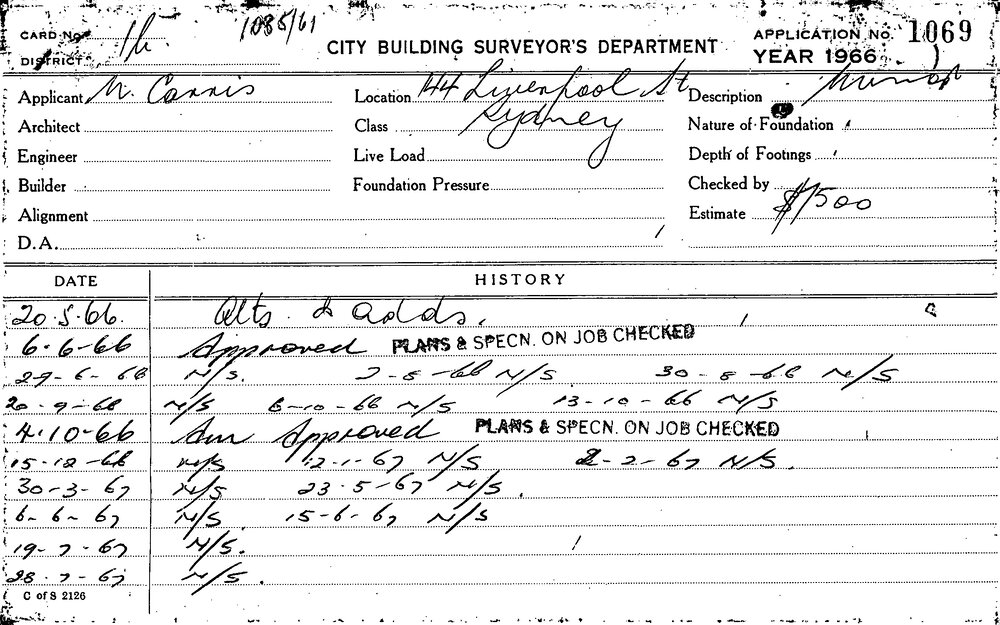 CARD No. 1085/61
CITY BUILDING SURVEYOR'S DEPARTMENT
APPLICATION No. 1069
DISTRICT
YEAR 1966
Applicant N. Carris Location 144 Liverpool St Description Minor
Architect Class Sydney Nature of Foundation
Engineer Live Load Depth of Footings
Builder Foundation Pressure Checked by
Alignment Estimate $1500
D.A.
DATE HISTORY
20.5.66. Alts. & adds.
6.6.66 Approved PLANS & SPECN. ON JOB CHECKED
29-6-66 N/S. 2-8-66 N/S 30-8-66 N/S
20-9-66 N/S 6-10-66 N/S 13-10-66 N/S
4.10-66 Am Approved PLANS & SPECN. ON JOB CHECKED
15-12-66 N/S 12-1-67 N/S 2-2-67 N/S.
30-3-67 N/S 23.5-67 N/S.
6-6-67 N/S 15-6-67 N/S
19-7-67 N/S.
28.7-67 N/S.
C of S 2126